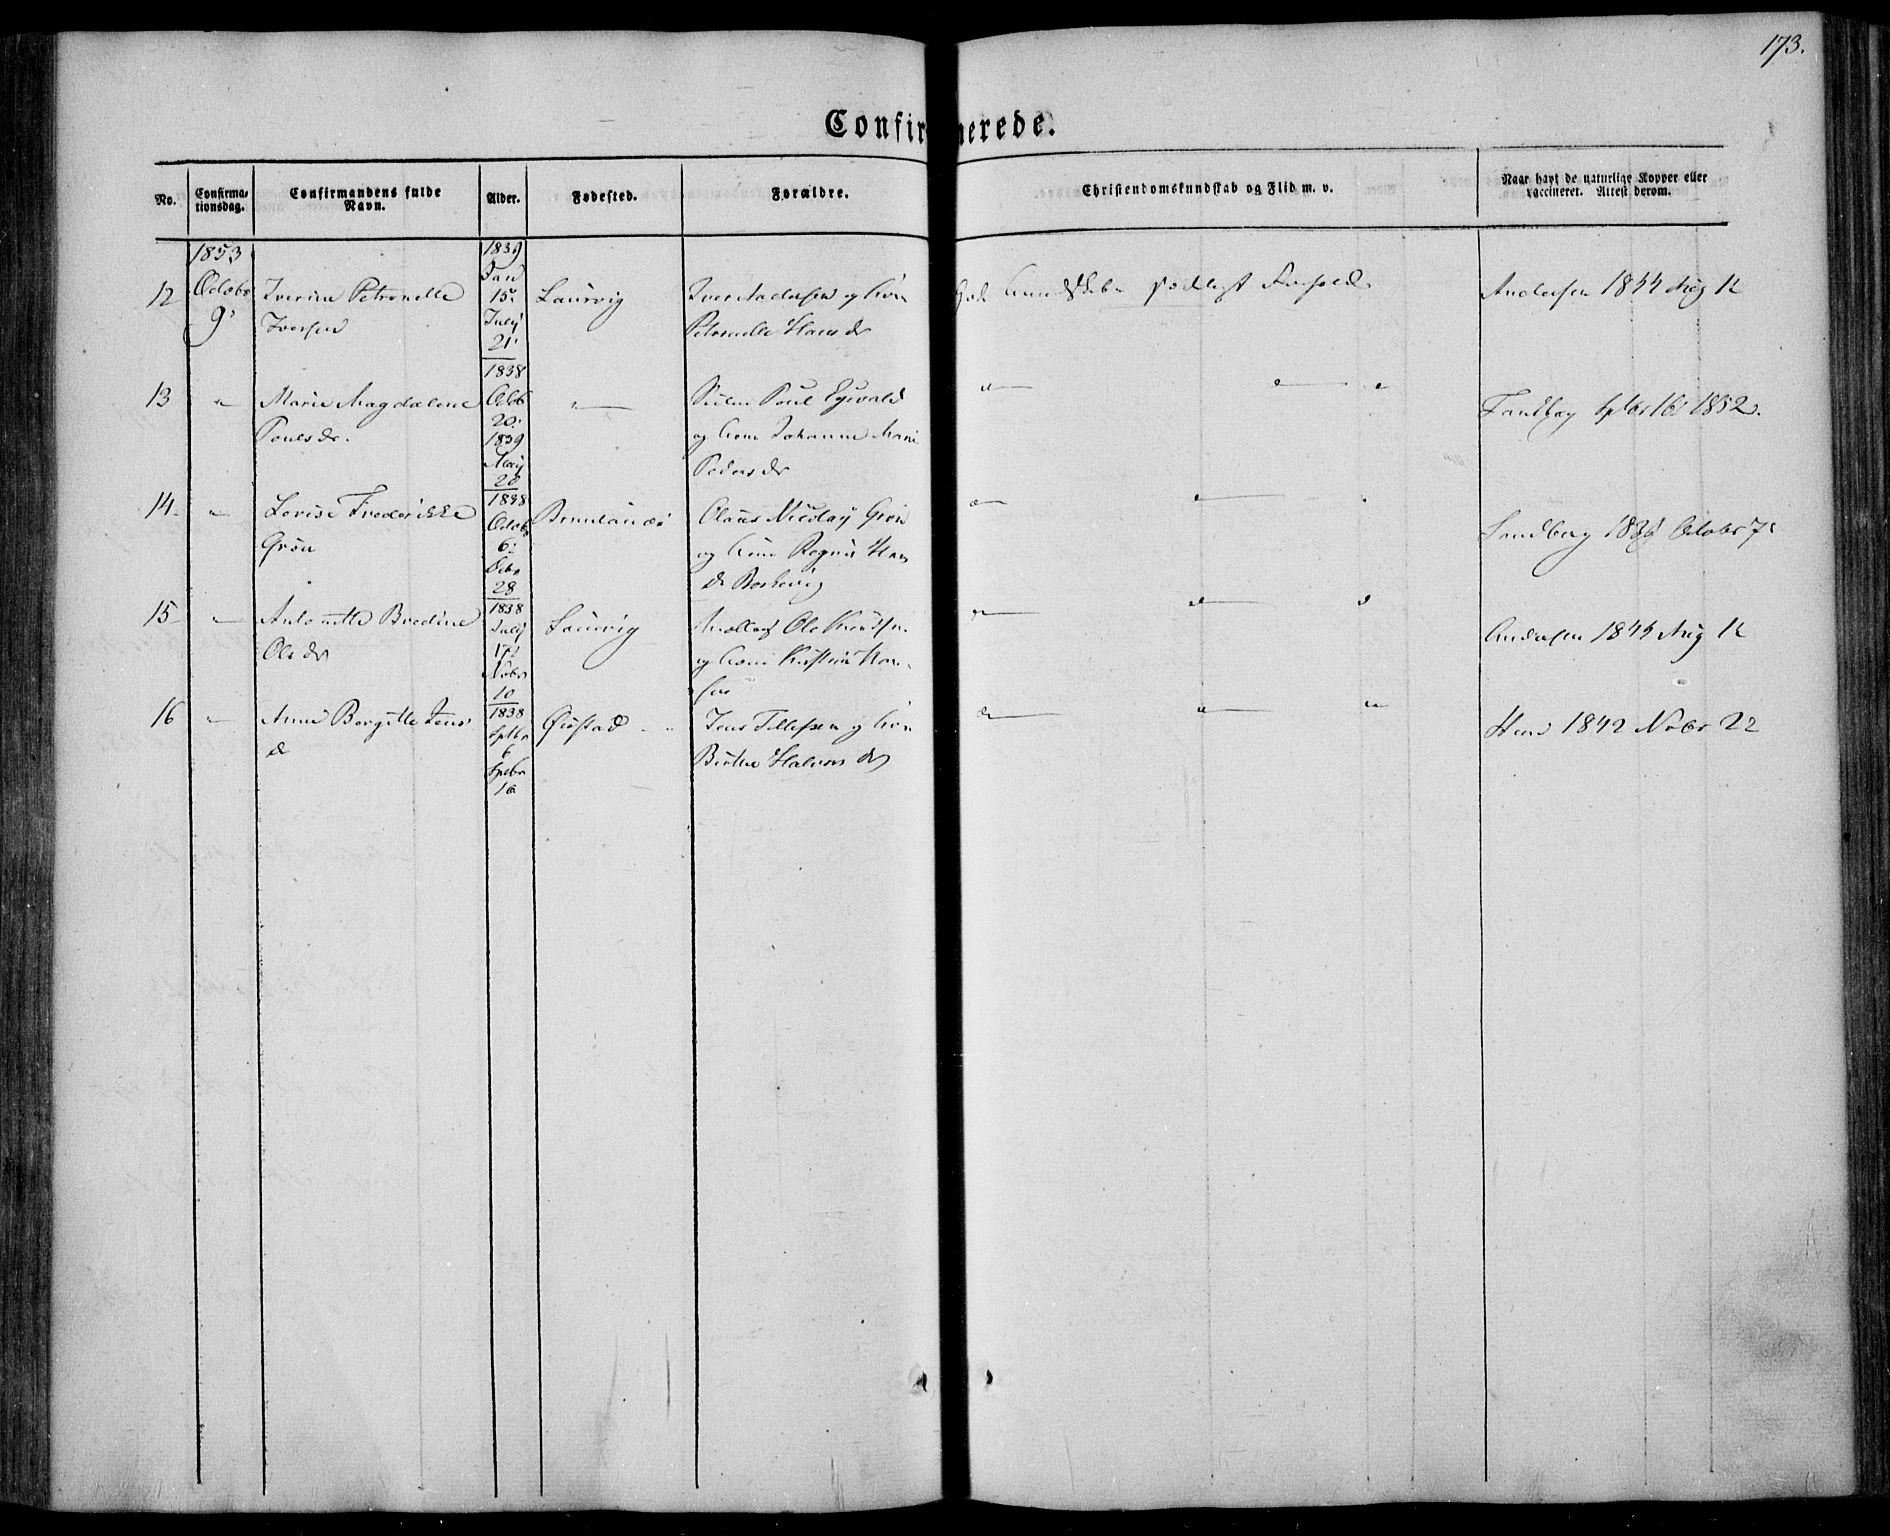 173.
Confirmerede.
No.
Confirma-
tionsdag.
Confirmandens fulde
Navn.
Alder.
Fødested.
Forældre.
Christendomskundskab og Flid m. v.
Naar havt de naturlige Kopper eller
vaccineret. Attest derom.
1853
12 Octobr
9'
Iverine Petronelle
Iversen
1839
Jan
15.
July
21.
Laurvig
Iver Andersen og Kone
Petronelle Hans dr
Gode Kundskaber Forhold
Andersen 1844 Aug 12
13 "
Marie Magdalene
Pouls dr.
1838
Octb
20.
1839
May
20
"
Poul Eywald
og Kone Johanne Marie
Peders dr
" " "
Sptbr 16 1852.
14 "
Lovise Frederikke
Grøn
1838
Octobr
6
Octbr
28
Brunlanæs
Claus Nicolay Grøn
og Kone Han
dr
" "
Sandberg Octobr 7
15 "
Antonette Bredine
Ols dr
1838
July
17
Nobr
10
Laurvig
Ole Knudsen
og Kone
" " "
Andersen 1844 Aug 12
16 "
Anne Bergitte Jens
d
1838
Sptbr
6
Sptbr
16
Jens Tillefsen og Kone
Birthe Halvors dr
" " "
1842 Nobr 22